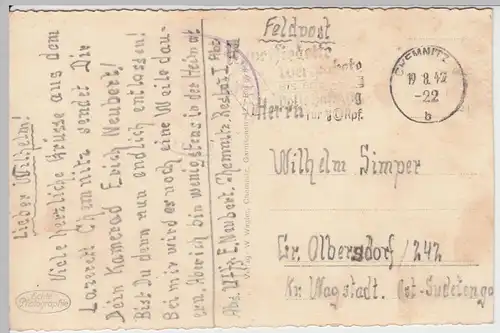 Lieber Wilhelm!
Viele herzliche Grüsse aus dem
Lazarett Chemnitz sendet Dir
Dein Kamerad Erich Neubert!
Bist Du denn nun endlich entlassen!
Bei mir wird es noch eine Weile dau-
ern. Aber ich bin wenigstens in der Heimat
Abs. Uffz. E. Neubert. Chemnitz. Res. Laz. I
Echte
Photographie
Feldpost
CHEMNITZ
19.8.42
-22
b
Herrn
Wilhelm Simper
Gr. Olbersdorf/242
Kr. Wagstadt. Ost-Sudetenga